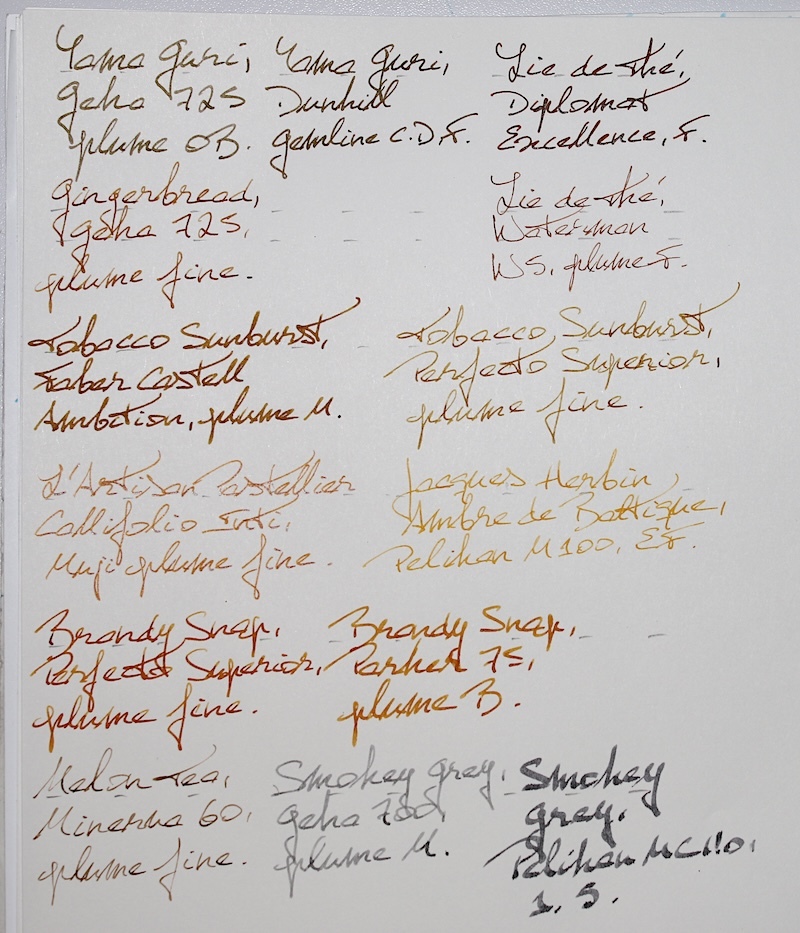 Yama Guri,
Geha 725
plume OB.
Yama Guri,
Dunhill
Gemline C.D.F.
Lie de thé,
Diplomat
Excellence, F.
Gingerbread,
Geha 725,
plume fine.
Lie de thé,
Waterman
W5, plume F.
Tobacco Sunburst,
Faber Castell
Ambition, plume M.
Tobacco Sunburst,
Perfecto Superior,
plume fine.
L'Artisan Pastellier
Callifolio Inti,
Muji plume fine.
Jacques Herbin,
Ambre de Baltique,
Pelikan M100, EF.
Brandy Snap,
Perfecto Superior,
plume fine.
Brandy Snap,
Parker 75,
plume B.
Melon Tea,
Minerva 60,
plume fine.
Smokey grey,
Geha 760,
plume M.
Smokey
grey,
Pelikan MC110,
1.5.